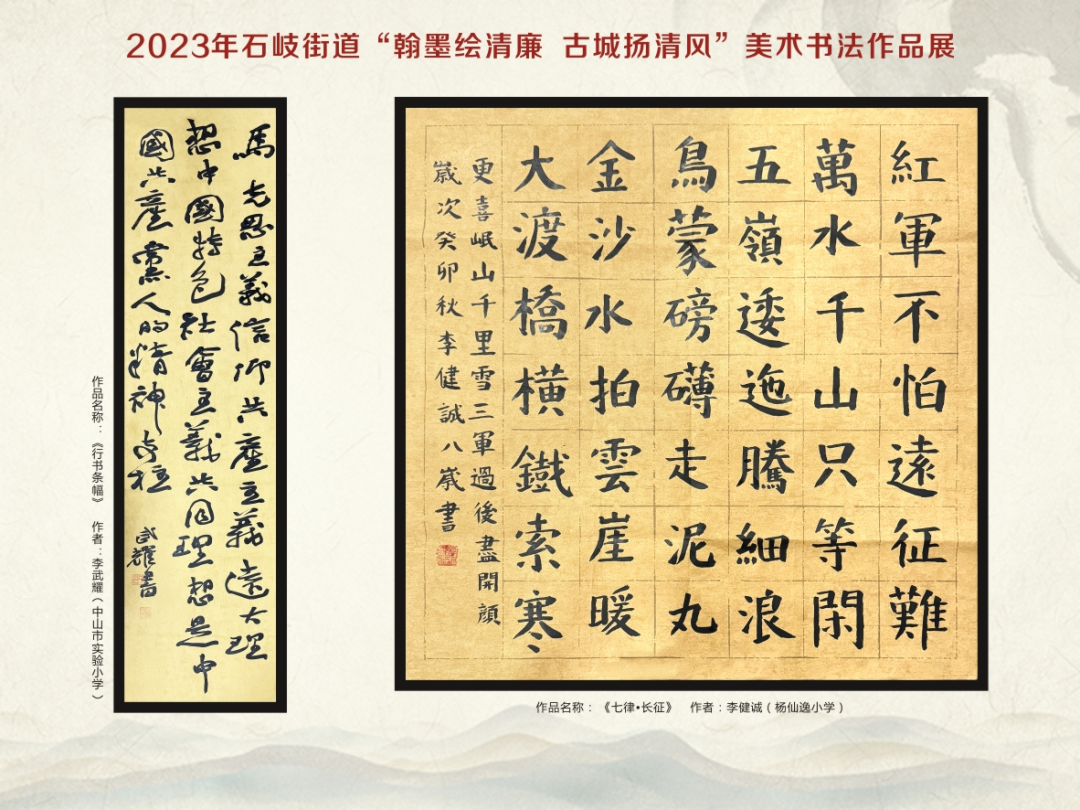 2023年石岐街道“翰墨绘清廉 古城扬清风”美术书法作品展
馬克思主義信仰共產主義遠大理
想中國特色社會主義共同理想是中
國共產黨人的精神支柱
武耀書
作品名称：《行书条幅》 作者：李武耀（中山市实验小学）
紅軍不怕遠征難
萬水千山只等閑
五嶺逶迤騰細浪
烏蒙磅礴走泥丸
金沙水拍雲崖暖
大渡橋橫鐵索寒
更喜岷山千里雪三軍過後盡開顏
歲次癸卯秋李健誠八歲書
作品名称：《七律•长征》 作者：李健诚（杨仙逸小学）